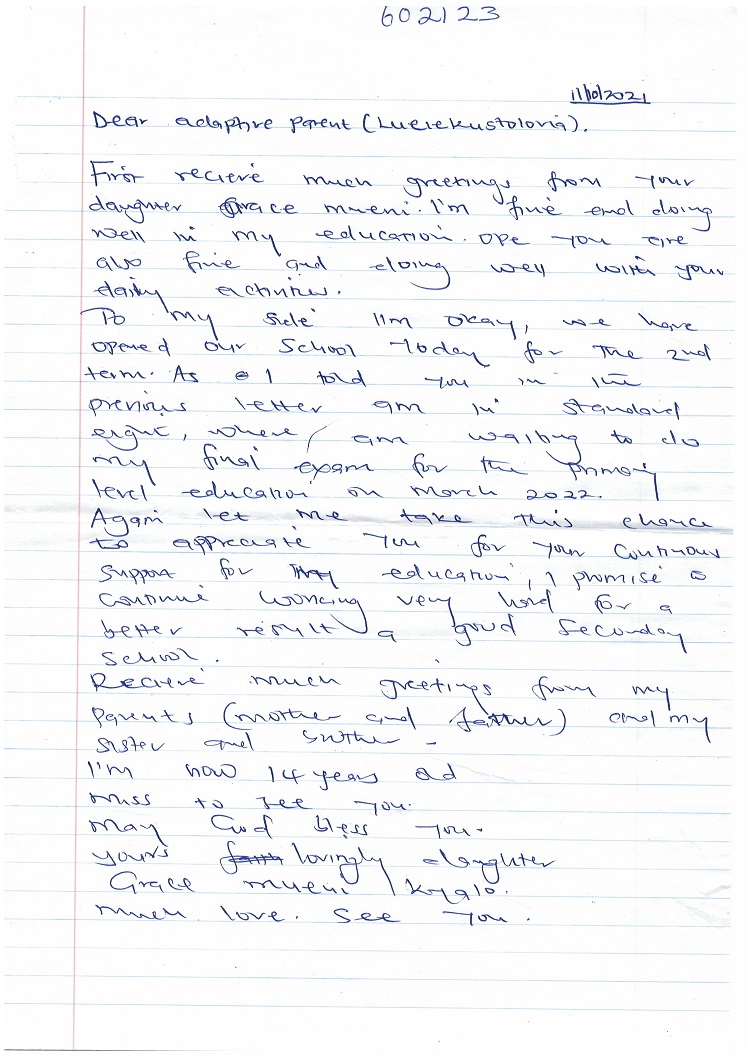 602123
11/10/2021
Dear adaptive parent (Luciekustoloria).
First recieve much greetings from your
daughter Grace mueni. I'm fine and doing
well in my education. ope you are
also fine and doing well with your
daily activities.
To my side I'm okay, we have
opened our School today for the 2nd
term. As I told you in the
previous letter am in standard
eight, where am waiting to do
my final exam for the primary
level education on march 2022.
Again let me take this chance
to appreciate you for your continous
support for my education, I promise to
continue working very hard for a
better result a good Seconday
School.
Recieve much greetings from my
parents (mother and father) and my
sister and brother -
I'm now 14 years od
miss to see you.
may God bless you.
yours lovingly daughter
Grace mueni kyalo.
much love. See you.